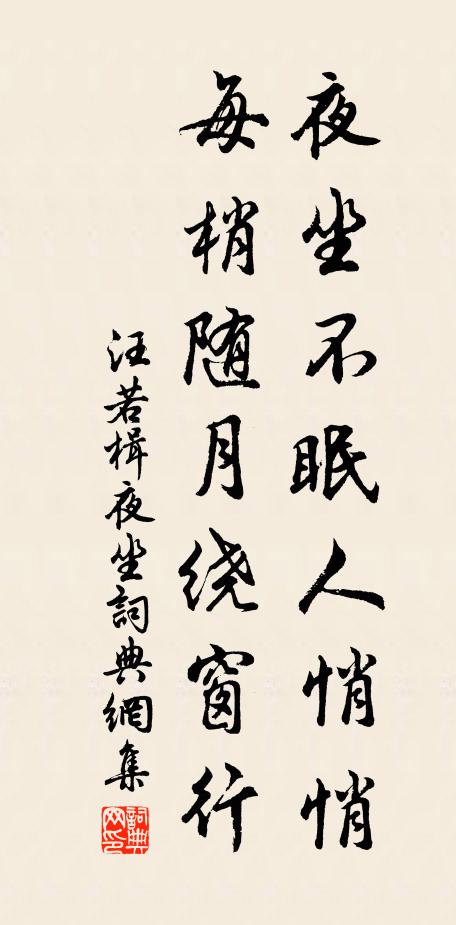 夜坐不眠人悄悄
每梢随月绕窗行
汪若楫夜坐詞典網集
詞典网印